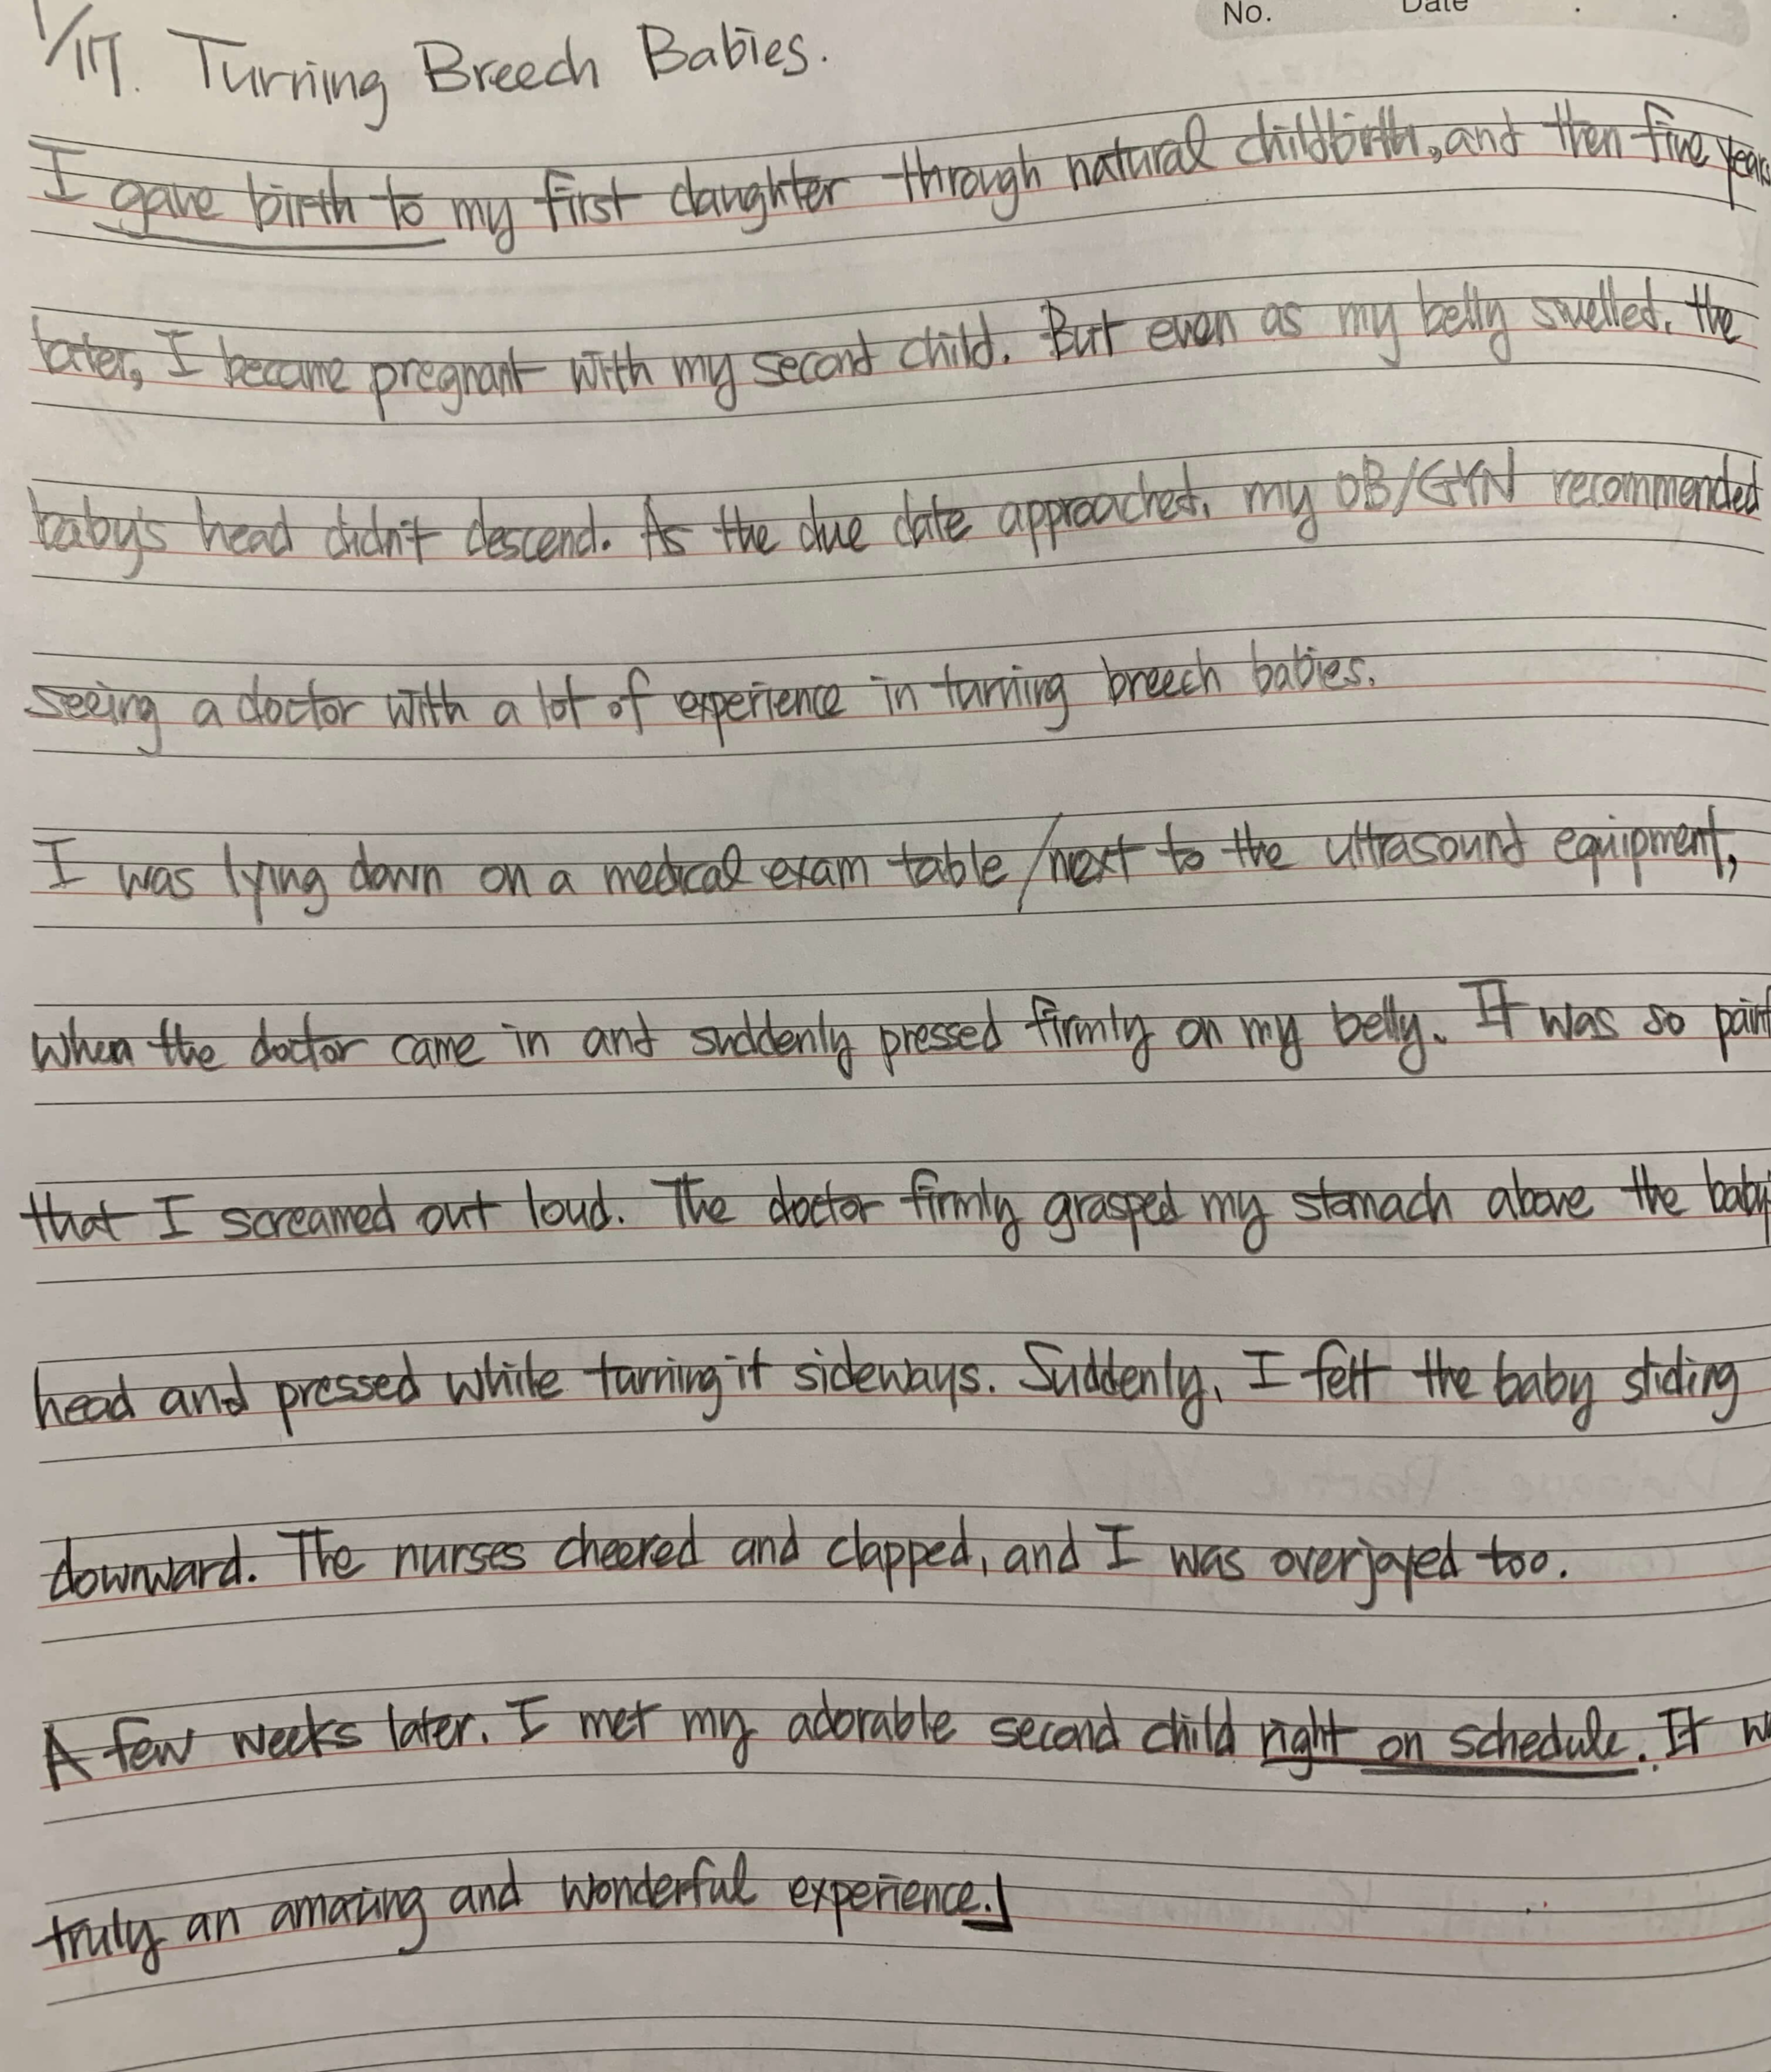 No. Date
1/17. Turning Breech Babies.
I gave birth to my first daughter through natural childbirth, and then five years
later, I became pregnant with my second child. But even as my belly swelled, the
baby's head didn't descend. As the due date approached, my OB/GYN recommended
seeing a doctor with a lot of experience in turning breech babies.
I was lying down on a medical exam table / next to the ultrasound equipment,
when the doctor came in and suddenly pressed firmly on my belly. It was so
that I screamed out loud. The doctor firmly grasped my stomach above the baby
head and pressed while turning it sideways. Suddenly, I felt the baby sliding
downward. The nurses cheered and clapped, and I was overjoyed too.
A few weeks later, I met my adorable second child right on schedule. It
truly an amazing and wonderful experience.」